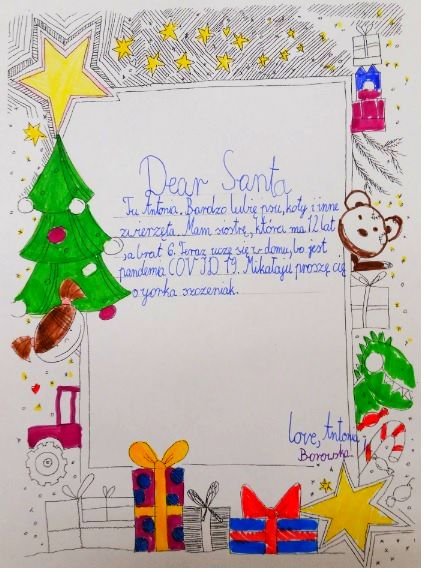 Dear Santa
Tu Antonia. Bardzo lubię psy, koty i inne
zwierzęta. Mam siostrę, która ma 12 lat
,a brat 6. Teraz uczę się w domu, bo jest
pandemia COVID 19. Mikałaju proszę cię
o yorka szczeniak.
love, Antonia
Borowska